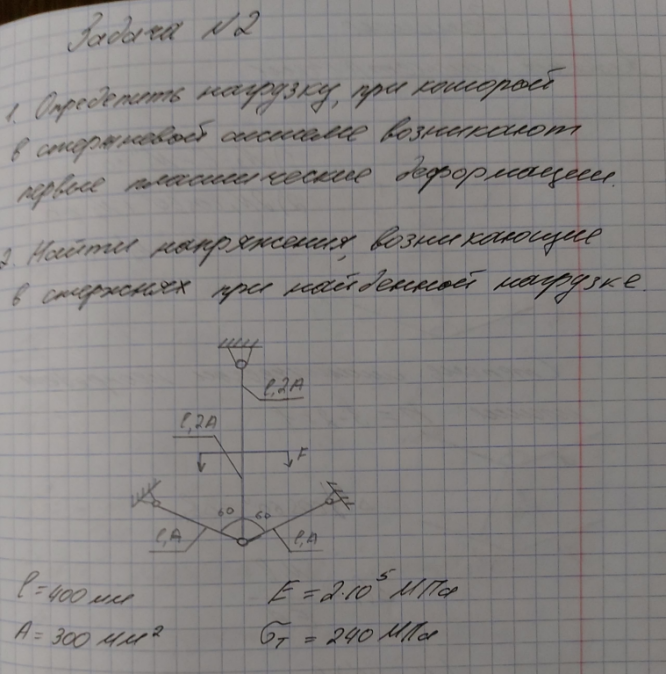 Задача N2
1. Определить нагрузку, при которой
в стержневой системе возникают
первые пластические деформации.
2. Найти напряжения, возникающие
в стержнях при найденной нагрузке.
l, 2A
l, 2A
F
60 60
l, A
l, A
l = 400 мм
E = 2·10⁵ МПа
A = 300 мм²
σт = 240 МПа